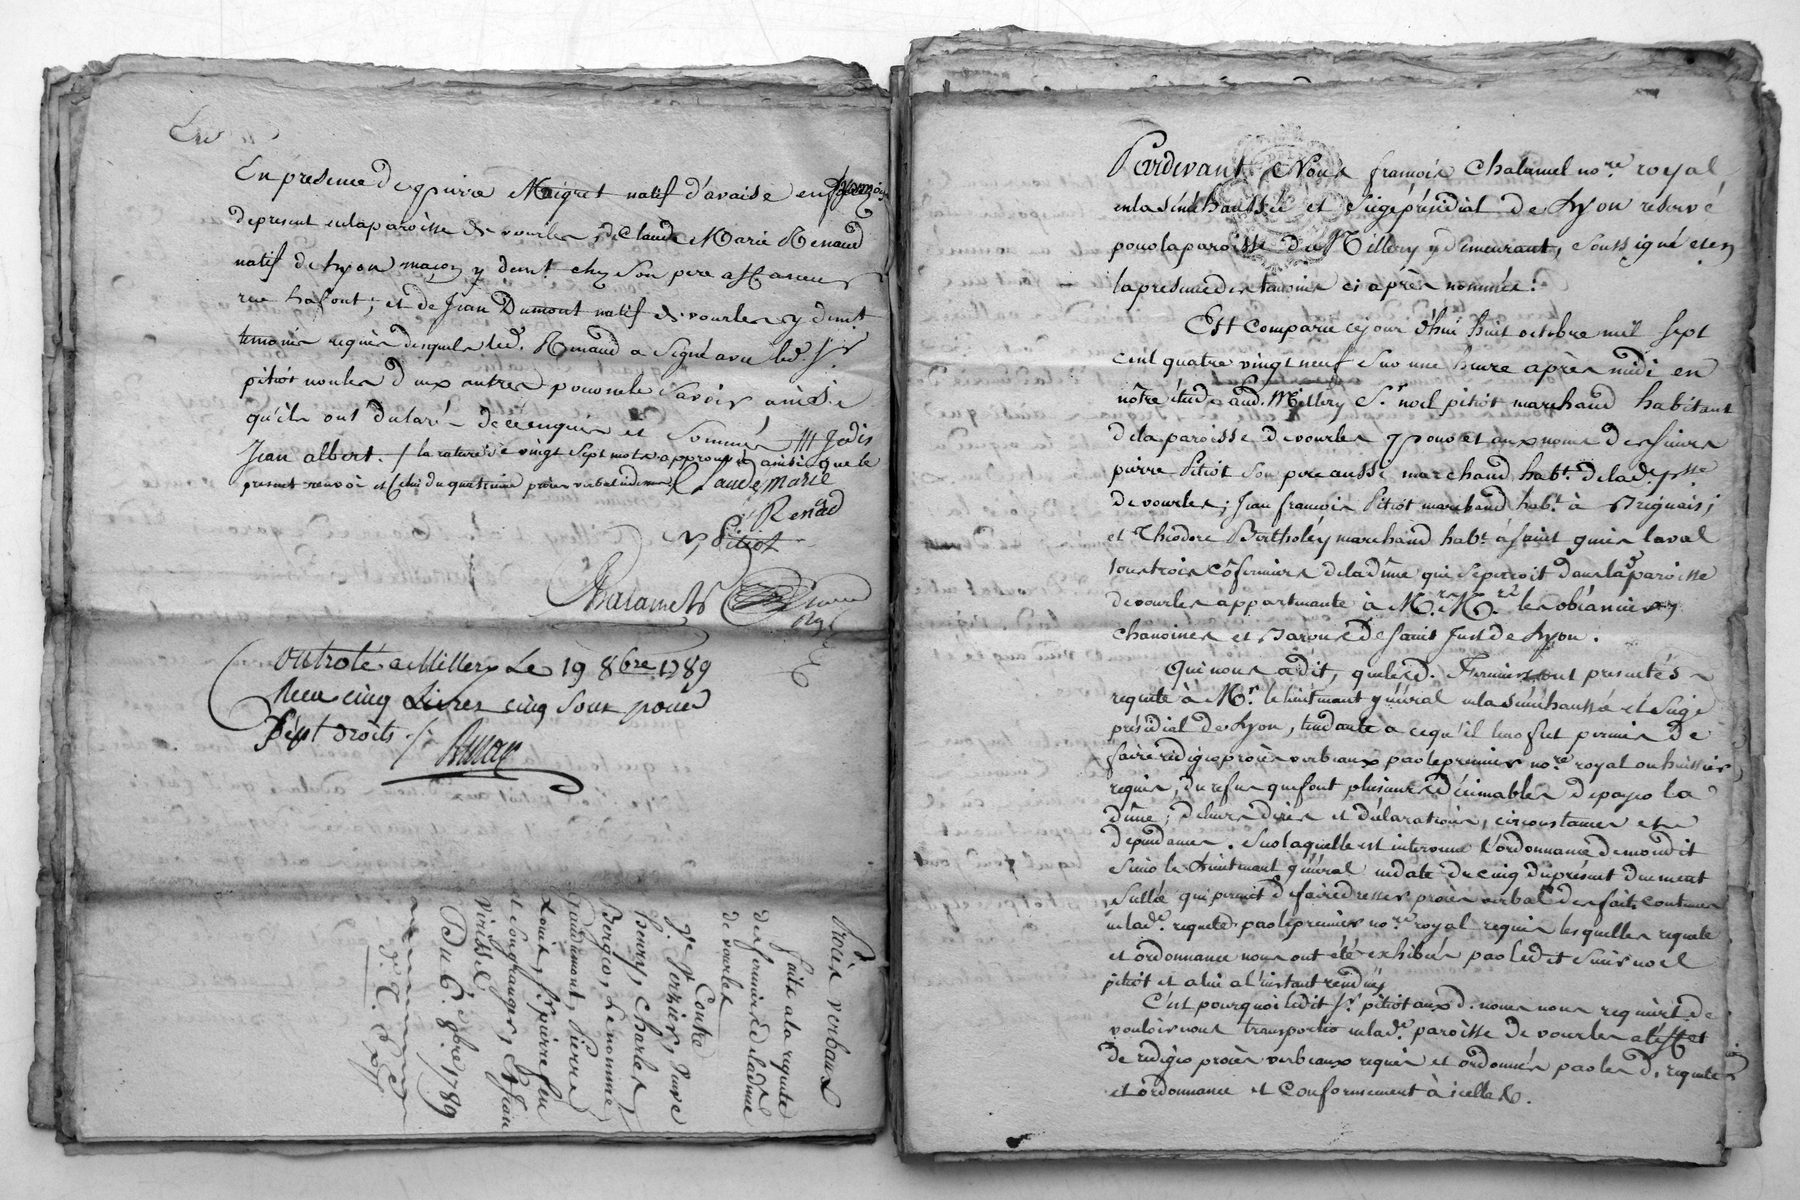 En presence de pierre Maigret natif d'avaise en
de present en la paroisse de vourles, de Claude Marie Renaud
natif de Lyon maçon y demt. chez son pere
rue ; et de Jean Dumont natif de vourles y demt.
temoins requis desquels led. Renaud a signé avec led. Sr.
pitiot non les deux autres pour ne le savoir ainsi
qu'ils ont declaré de ce enquis et sommés
Jean albert. / la rature de vingt sept mots approuvée ainsi que le
present renvoi et celui du
Claude marie
Renaud
N. Pitiot
Chalamel
Controlé a Millery Le 19 8bre 1789
Recu cinq Livres cinq sous pour
sept droits ./.
Procès verbaux
faits a la requete
des fermiers de la dime
de vourles
Contre
Sr. , veuve
henry, Charles
Bergeo, Le nommé
Gaudimont, Pierre
Sr. pierre
et Jean
Du 8. 8bre. 1789
Pardevant Nous françois Chalamel nore. royal
en la sénéchaussée et siége présidial de Lyon réservé
pour la paroisse de Millery y demeurant, soussigné et en
la présence des temoins ci après nommés:
Est comparu cejourd'hui huit octobre mil sept
cent quatre vingt neuf sur une heure après midi en
nôtre étude aud. Millery Sr. noel pitiot marchand habitant
de la paroisse de vourles pour et aux noms de sieurs
pierre Pitiot son pere aussi marchand habt. de lad. psse
de vourles; Jean françois Pitiot marchand habt. à Brignais;
et Théodore Bertholey marchand habt. à saint genis laval
tous trois côfermiers de la dîme qui se perçoit dans lad. paroisse
de vourles appartenante à Mr. Mrs. les obéanciers
chanoines et Barons de saint Just de Lyon.
Qui nous a dit, que lesd. Fermiers ont presenté
requête à Mr. le lieutenant général en la sénéchaussée et siége
présidial de Lyon, tendante à ce qu'il leur fut permis de
faire rédiger procès verbeaux par le premier nore. royal ou huissier
requis, du refus que font plusieurs décimables de payer la
dîme; de leurs dires et déclarations, circonstances et
dépendances. Sur laquelle est intervenue l'ordonnance de mondit
sieur le Lieutenant général en date du cinq du present dument
scellée qui permet de faire dresser procès verbal des faits contenus
en lad. requete par le premier nore. royal requis lesquelles requete
et ordonnance nous ont été exhibées par ledit sieur noel
pitiot et a lui a l'instant rendües
C'est pourquoi ledit Sr. pitiot aux d. noms nous requiert de
vouloir nous transporter en lad. paroisse de vourles a l'effet
de rédiger procès verbeaux requis et ordonnés par les d. requete
et ordonnance et conformément à icelles.